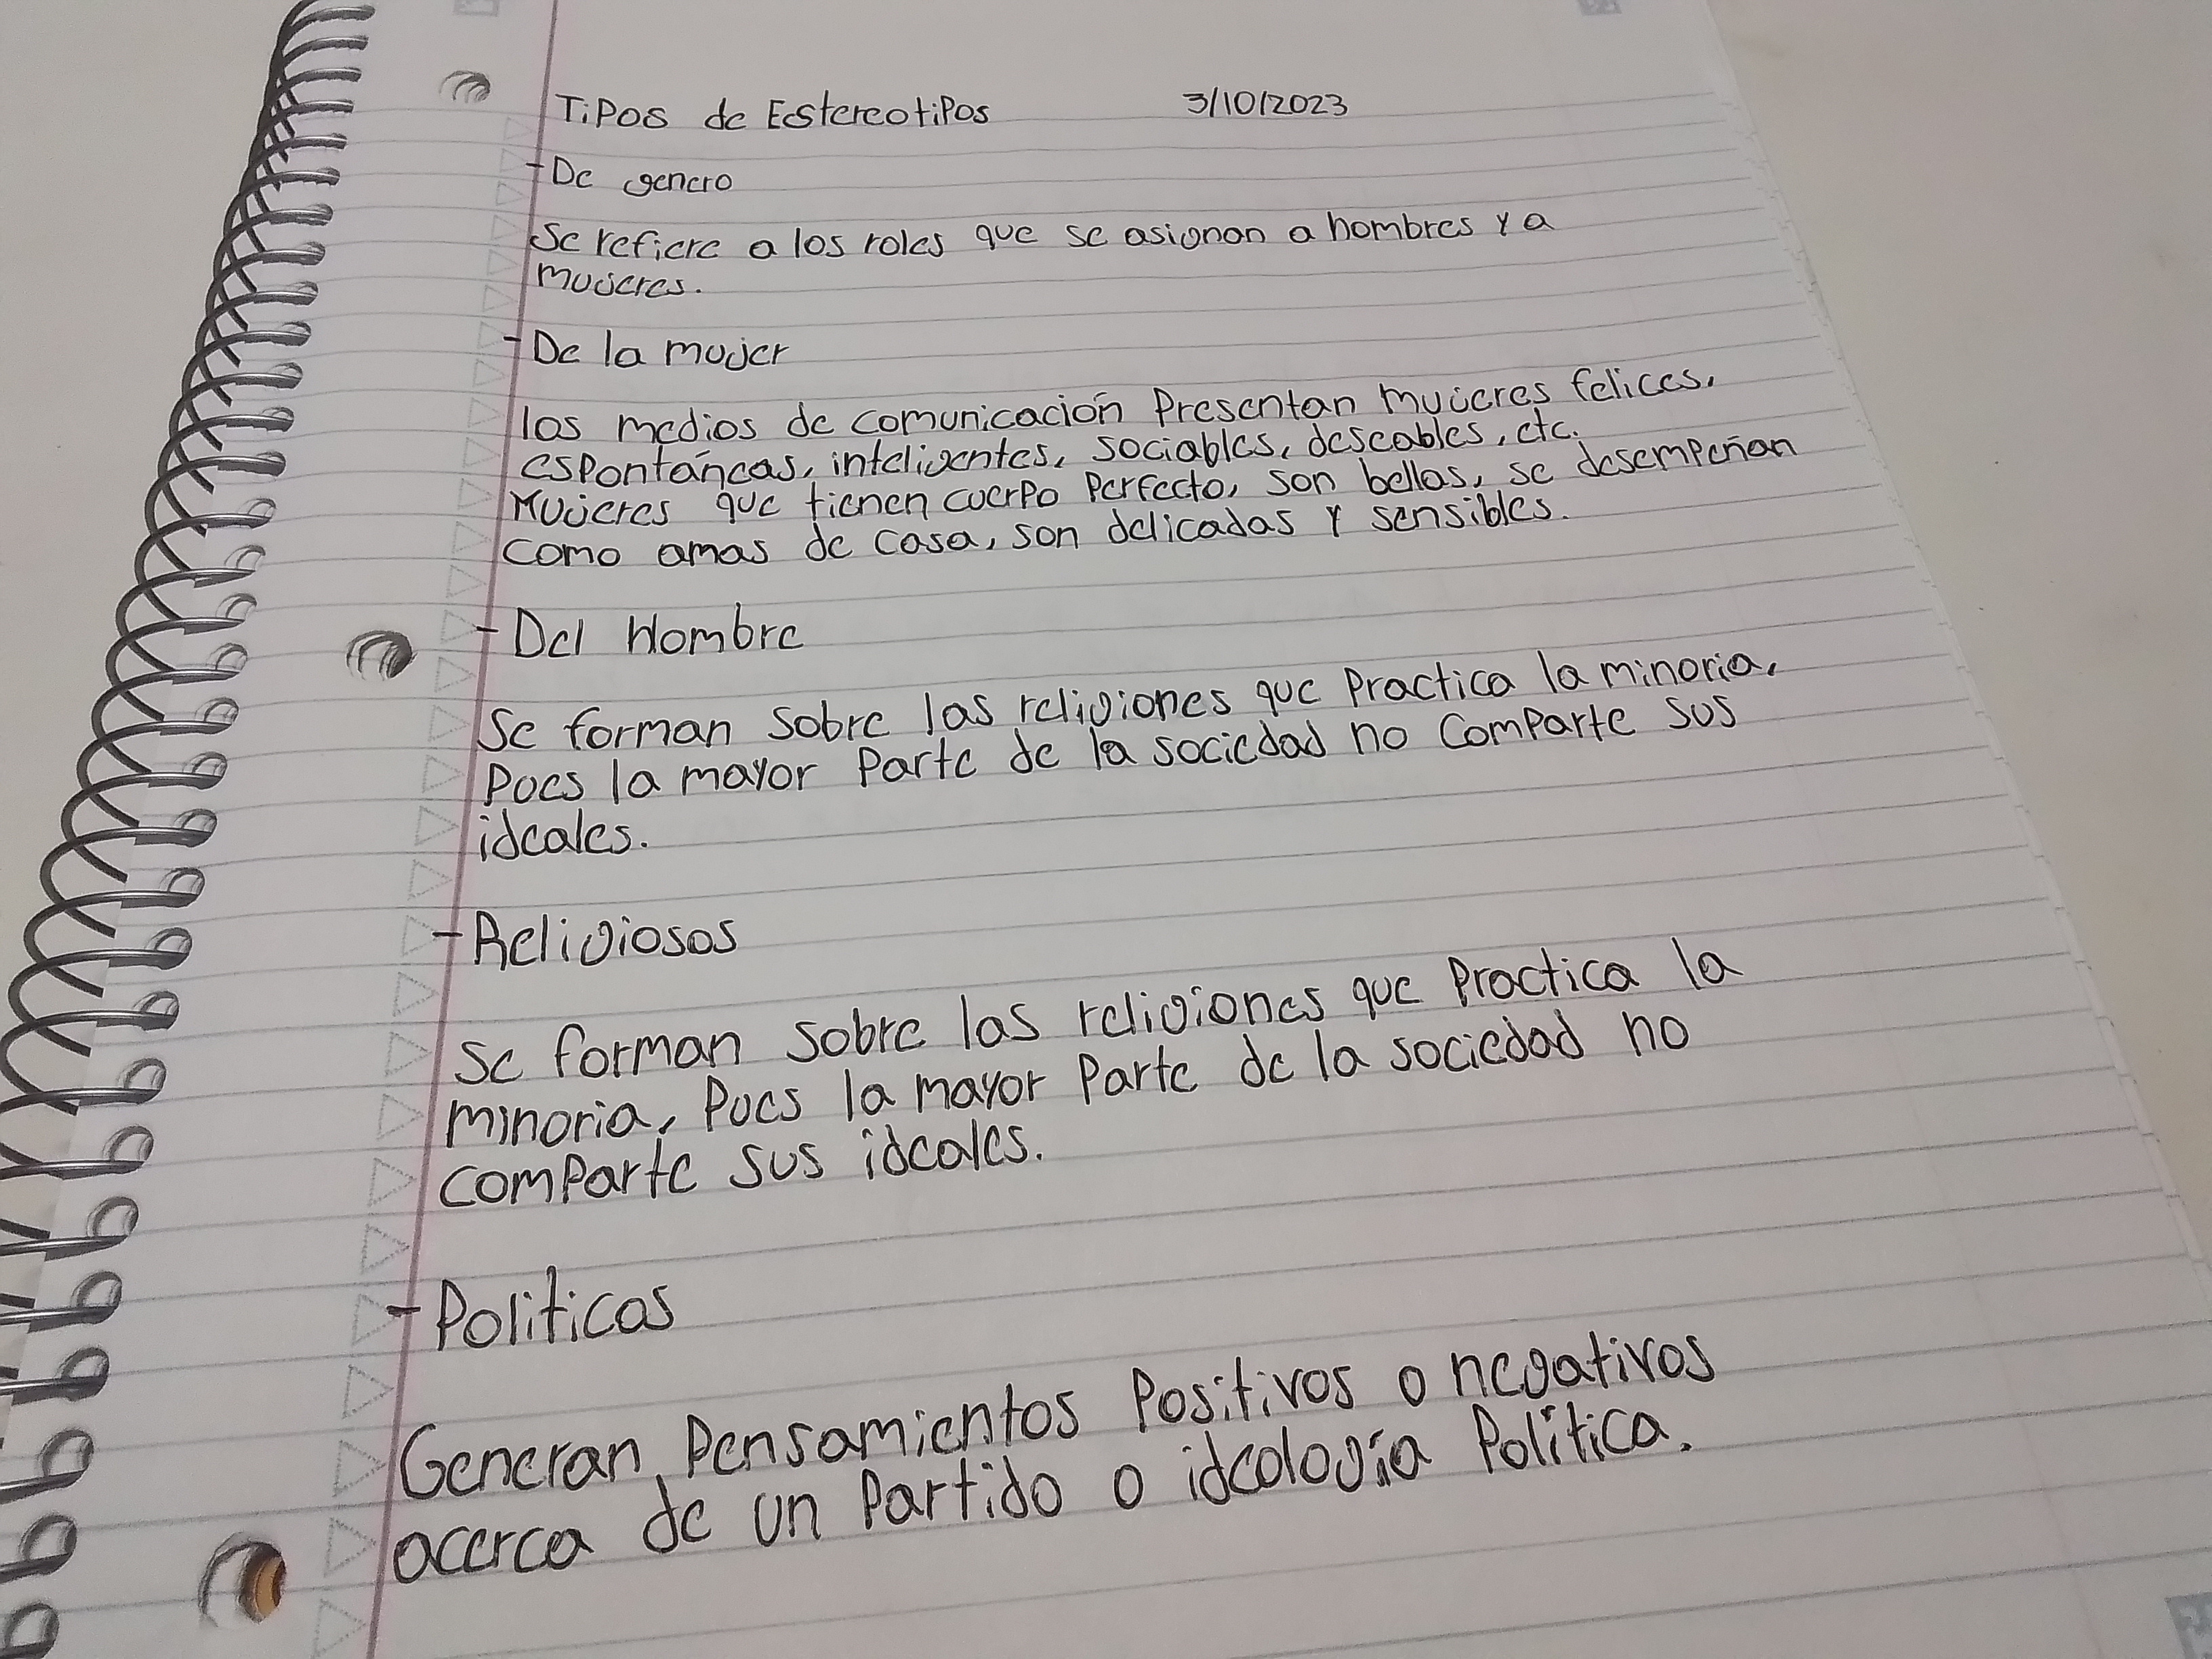 Tipos de Estereotipos 3/10/2023
- De genero
Se refiere a los roles que se asignan a hombres y a
mujeres.
- De la mujer
los medios de comunicación presentan mujeres felices,
espontáneas, inteligentes, sociables, deseables, etc.
Mujeres que tienen cuerpo perfecto, son bellas, se desempeñan
como amas de casa, son delicadas y sensibles.
- Del Hombre
Se forman sobre las religiones que practica la minoria,
pues la mayor parte de la sociedad no comparte sus
ideales.
- Religiosos
Se forman sobre las religiones que practica la
minoria, pues la mayor parte de la sociedad no
comparte sus ideales.
- Politicos
Generan pensamientos positivos o negativos
acerca de un partido o ideología política.